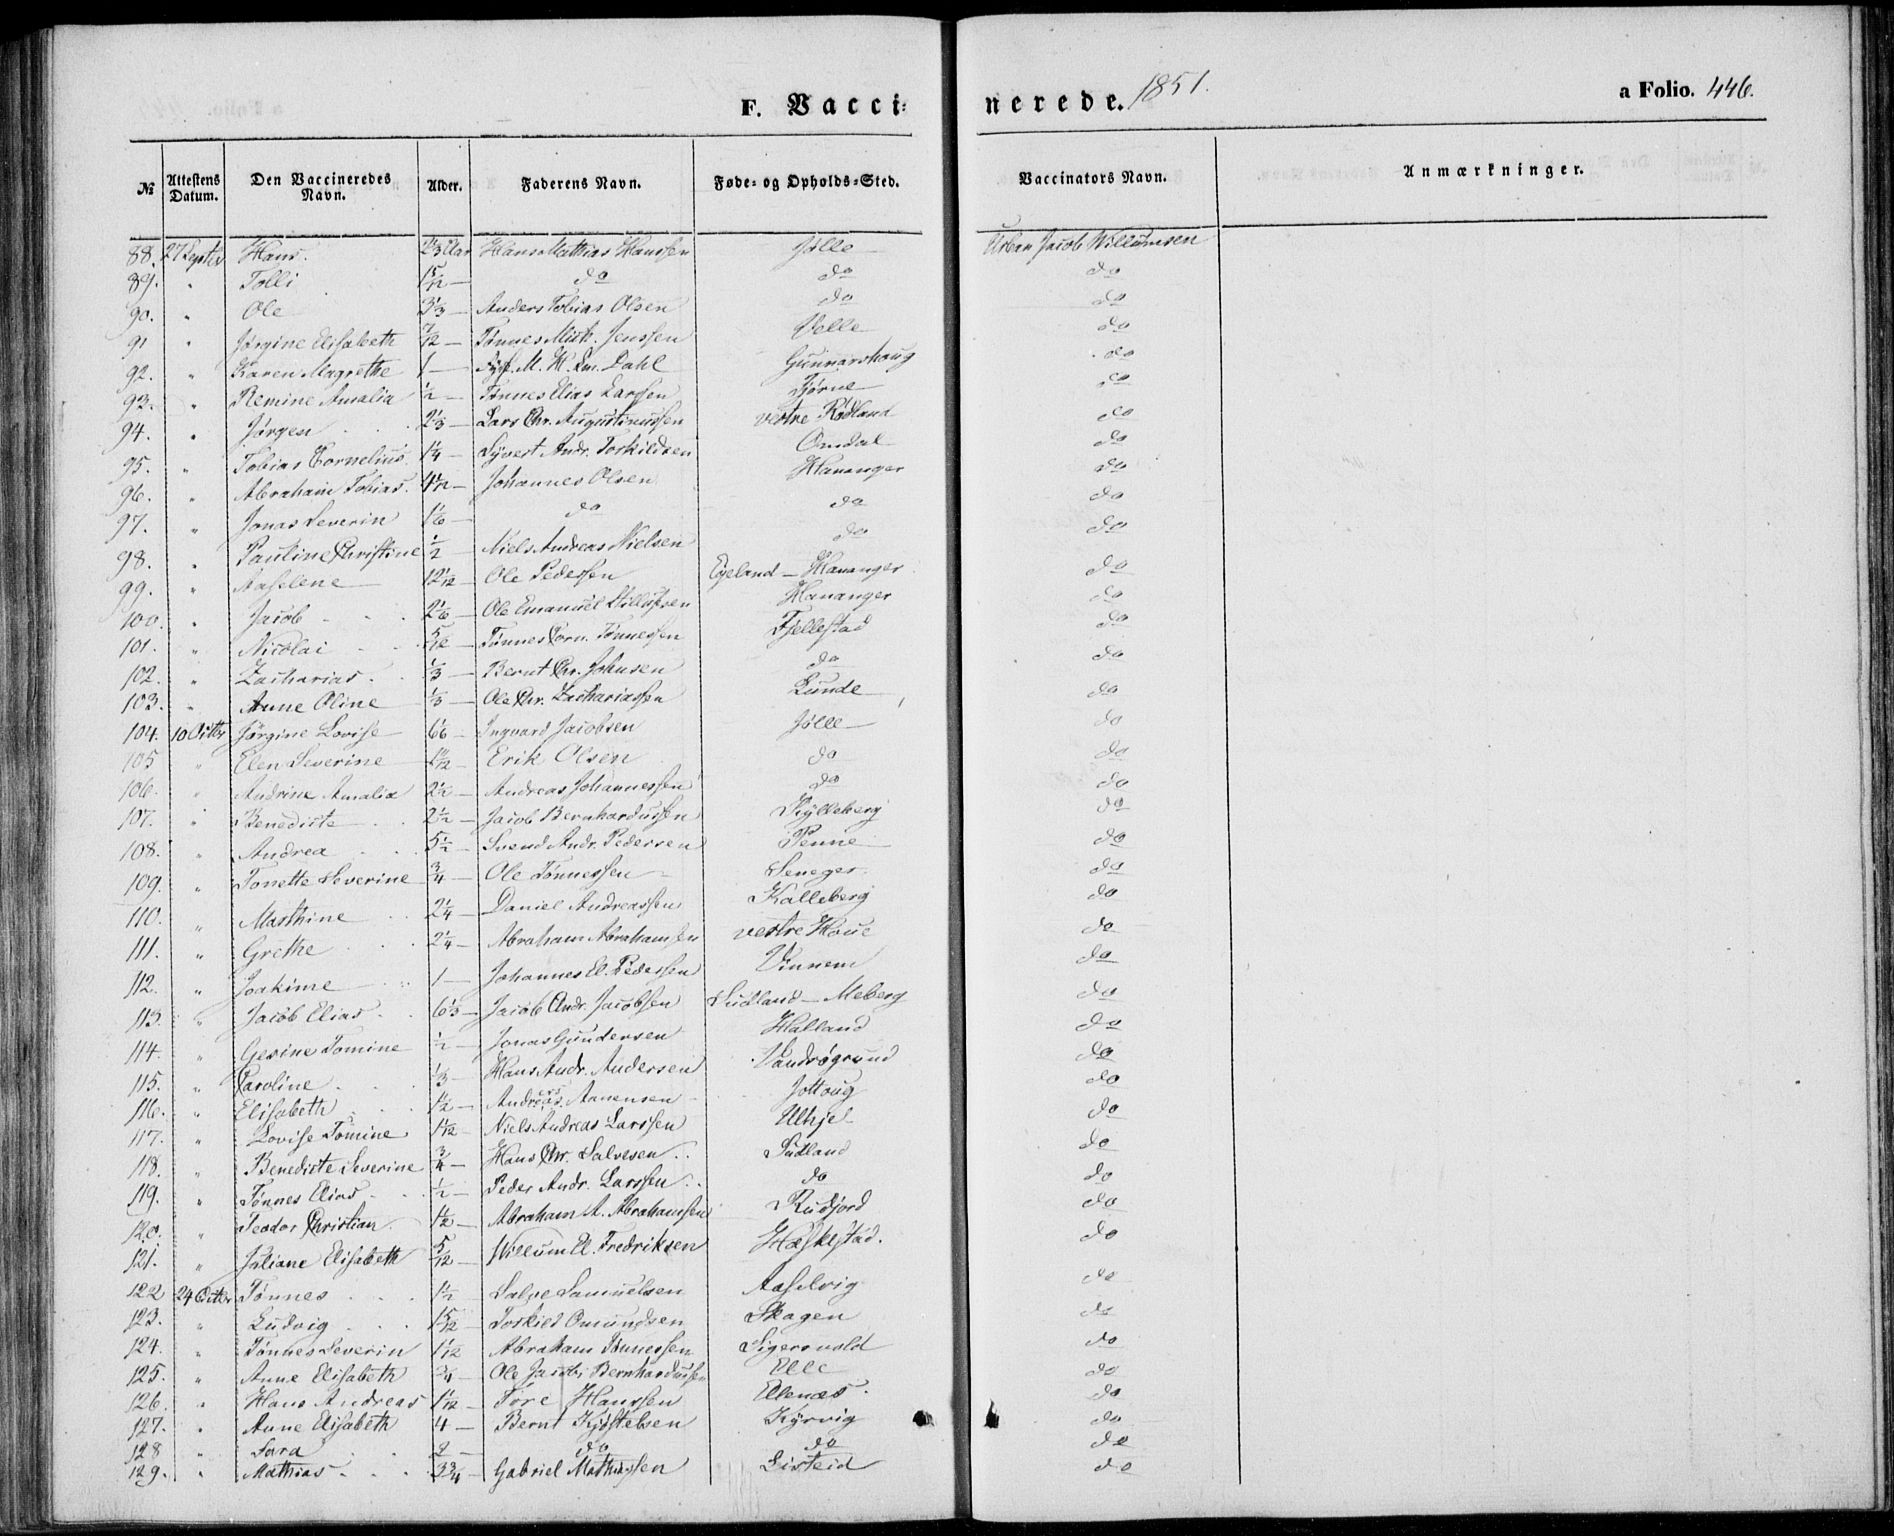 F. Vacci-
nerede. 1851.
a Folio. 446.
№ | Attestens Datum. | Den Vaccineredes Navn. | Alder. | Faderens Navn. | Føde- og Opholds-Sted. | Vaccinators Navn. | Anmærkninger.
88. 27 Septbr Hans. Aar Hans Mathias Hanssen Jølle Urban Jacob Willumsen
89. " Tolli 1 5/12 — do do do
90. " Ole 3 1/3 — Anders Tobias Olsen do do
91 " Jørgine Elisabeth 7/12 — Tønnes Mich. Jenssen Velle do
92. " Karen Magrethe 1 — M. H. Dahl Gunnarshaug do
93. " Remine Amalia 1/2 — Tønnes Elias Larssen Bjørne do
94. " Jørgen 2 1/3 — Lars Chr. Augustinussen vestre Rødland do
95. " Tobias Cornelius 1 1/4 — Syvert Andr. Torkildsen Omdal do
96. " Abraham Tobias. 4 1/12 — Johannes Olsen Hananger do
97. " Jonas Severin 1 1/6 — do do do
98. " Pauline Christine 1/2 — Niels Andreas Nielsen do do
99. " Aaselene 12 1/12 — Ole Pedersen Egeland — Hananger do
100. " Jacob 2 1/6 — Ole Emanuel Hananger do
101. " Nicolai Tønnes Corn. Tønnessen Fjellestad do
102. " Zacharias. 1/3 — Bernt Chr. Johnsen do do
103. " Anne Oline 1/3 — Ole Chr. Zachariassen Lunde do
104. 10 Octbr Jørgine Lovise 6 1/6 — Ingvard Jacobsen Jølle do
105 " Elen Severine — Erik Olsen do do
106. " Andrine Amalia 2 1/2 — Andreas Johannessen do do
107. " Benedicte 2 1/2 — Jacob Bernhardussen Kylleberg do
108. " Andrea 5 1/2 — Svend Andr. Pedersen Penne do
109. " Tonette Severine 3/4 — Ole Tønnessen Seneger do
110. " Marthine 2 1/4 — Daniel Andreassen Kalleberg do
111. " Grethe 2 1/4 — Abraham Abrahamsen vestre Houe do
112. " Joakime 1 — Johannes El. Pedersen Vinnem do
113. " Jacob Elias 6 1/3 — Jacob Andr. Jacobsen Sudland — Meberg do
114. " Gesine Tomine 1/2 — Jonas Gundersen Halland do
115. " Caroline 1/3 — Hans Andr. Andersen Vandrøgrund do
116. " Elisabeth 1 1/2 — Anders Aanensen Jottoug do
117. " Lovise Tomine 1 1/12 — Niels Andreas Larssen Ulhjel do
118. " Benedicte Severine 3/4 — Hans Chr. Salvesen Sudland do
119. " Tønnes Elias 1/2 — Peder Andr. Larssen do do
120. " Teodor Christian 1 1/2 — Abraham A. Abrahamsen Rudjord do
121. " Juliane Elisabeth 5/12 — Willum El. Fredriksen Haskestad. do
122 24 Octbr Tønnes 1 1/2 — Salve Samuelsen Aaselvig do
123. " Ludvig 1 5/12 — Torkild Omundsen Skagen do
124. " Tønnes Severin 1 1/12 — Abraham Tønnessen Sigersvold do
125. " Anne Elisabeth 3/4 — Ole Jacob Bernhardussen Elle do
126. " Hans Andreas 1 1/12 — Tore Hanssen Ellenæs. do
127. " Anne Elisabeth 4 — Bernt Kjøstelsen Kyrvig do
128 " Sara 2 — do do do
129. " Mathias 3 3/4 — Gabriel Mathissen Listeid do